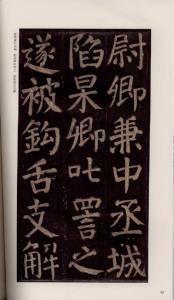 尉卿兼中丞城
陷杲卿叱詈之
遂被鈎舌支解